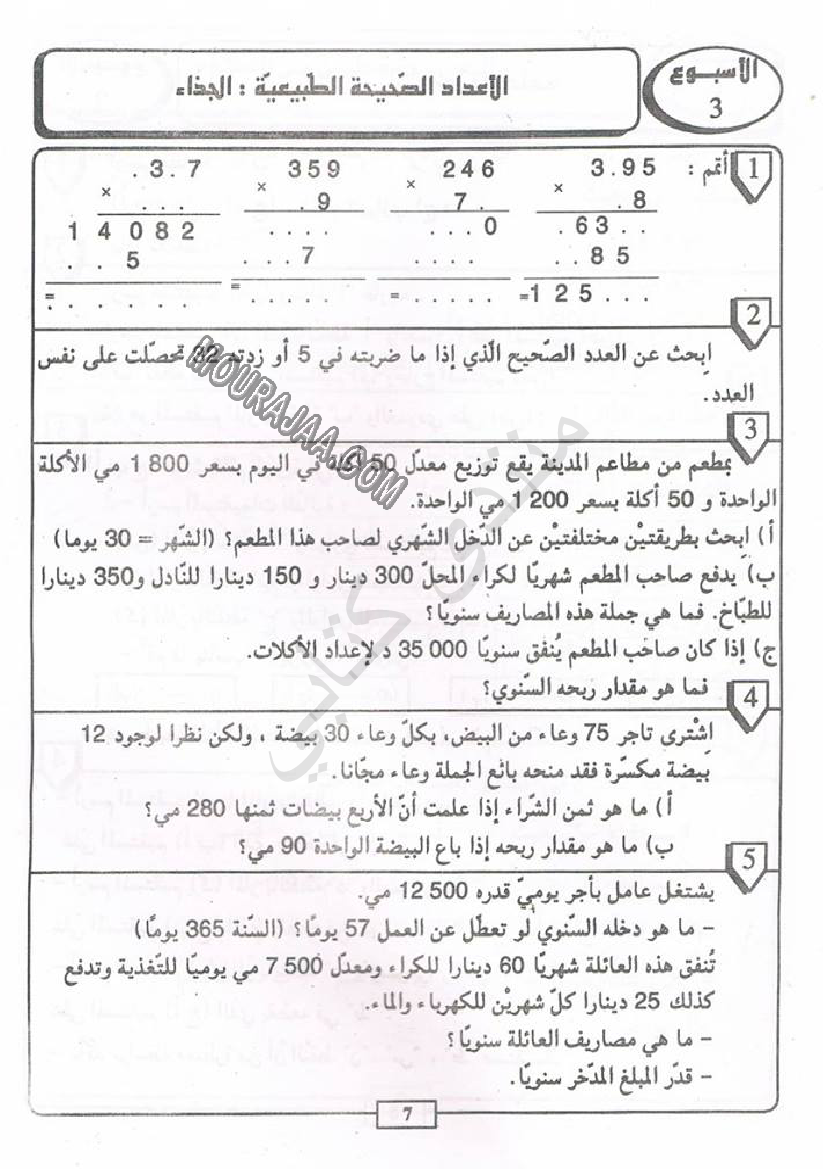 الأسبوع
3
الأعداد الصّحيحة الطّبيعيّة : الجذاء
1
أتمم :
3.95 246 359 .3.7
× × × ×
.8 7. .9 ...
.63.. ...0 .... 14082
..85 .... ...7 ..5
=125... =..... =..... =......
2
اِبحث عن العدد الصّحيح الّذي إذا ما ضربته في 5 أو زدته 32 تحصّلت على نفس
العدد.
3
بمطعم من مطاعم المدينة يقع توزيع معدّل 50 أكلة في اليوم بسعر 800 1 مي الأكلة
الواحدة و 50 أكلة بسعر 200 1 مي الواحدة.
أ) اِبحث بطريقتيْن مختلفتيْن عن الدّخل الشّهري لصاحب هذا المطعم؟ (الشّهر = 30 يوما)
ب) يدفع صاحب المطعم شهريّا لكراء المحلّ 300 دينار و 150 دينارا للنّادل و350 دينارا
للطبّاخ. فما هي جملة هذه المصاريف سنويّا؟
ج) إذا كان صاحب المطعم يُنفق سنويّا 000 35 د لإعداد الأكلات.
فما هو مقدار ربحه السّنوي؟
4
اِشترى تاجر 75 وعاء من البيض، بكلّ وعاء 30 بيضة ، ولكن نظرا لوجود 12
بيضة مكسّرة فقد منحه بائع الجملة وعاء مجّانا.
أ) ما هو ثمن الشّراء إذا علمت أنّ الأربع بيضات ثمنها 280 مي؟
ب) ما هو مقدار ربحه إذا باع البيضة الواحدة 90 مي؟
5
يشتغل عامل بأجر يوميّ قدره 500 12 مي.
– ما هو دخله السّنوي لو تعطّل عن العمل 57 يومًا؟ (السّنة 365 يومًا)
تُنفق هذه العائلة شهريّا 60 دينارا للكراء ومعدّل 500 7 مي يوميّا للتّغذية وتدفع
كذلك 25 دينارا كلّ شهريْن للكهرباء والماء.
– ما هي مصاريف العائلة سنويّا؟
– قدّر المبلغ المدّخر سنويّا.
7
HOURAJAA.COM
منتدى كتابي